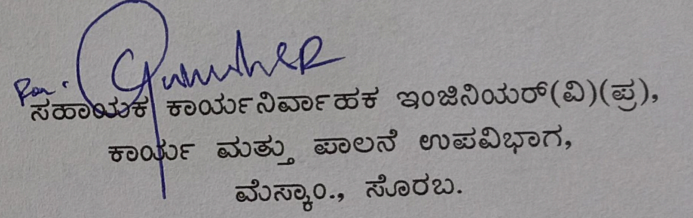 ಸಹಾಯಕ ಕಾರ್ಯನಿರ್ವಾಹಕ ಇಂಜಿನಿಯರ್(ವಿ)(ಪ್ರ),
ಕಾರ್ಯ ಮತ್ತು ಪಾಲನೆ ಉಪವಿಭಾಗ,
ಮೆಸ್ಕಾಂ., ಸೊರಬ.